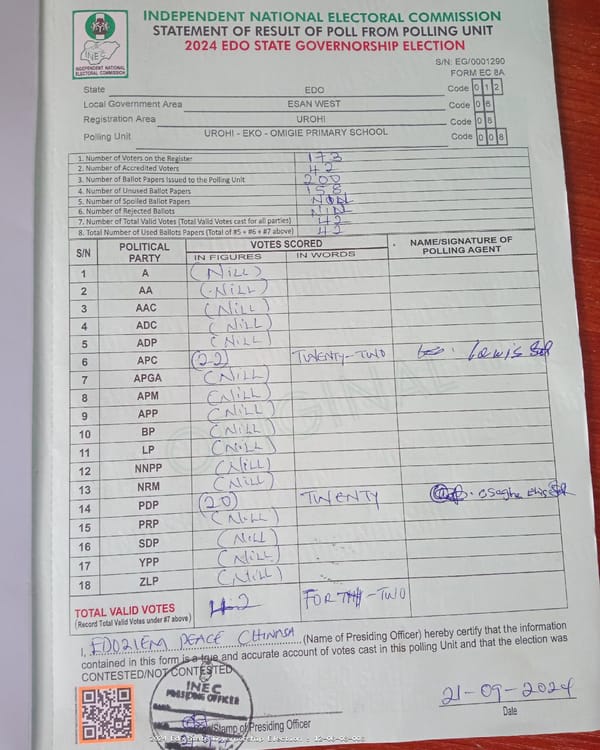 INDEPENDENT NATIONAL ELECTORAL COMMISSION
STATEMENT OF RESULT OF POLL FROM POLLING UNIT
2024 EDO STATE GOVERNORSHIP ELECTION
INEC
INDEPENDENT NATIONAL ELECTORAL COMMISSION
S/N: EG/0001290
FORM EC 8A
State EDO Code 0 1 2
Local Government Area ESAN WEST Code 0 8
Registration Area UROHI Code 0 8
Polling Unit UROHI - EKO - OMIGIE PRIMARY SCHOOL Code 0 0 8
1. Number of Voters on the Register 173
2. Number of Accredited Voters 42
3. Number of Ballot Papers Issued to the Polling Unit 200
4. Number of Unused Ballot Papers 158
5. Number of Spoiled Ballot Papers
6. Number of Rejected Ballots
7. Number of Total Valid Votes (Total Valid Votes cast for all parties) 42
8. Total Number of Used Ballots Papers (Total of #5 + #6 + #7 above) 42
S/N POLITICAL PARTY VOTES SCORED NAME/SIGNATURE OF POLLING AGENT
IN FIGURES IN WORDS
1 A (NiLL)
2 AA (NiLL)
3 AAC (NiLL)
4 ADC (NiLL)
5 ADP (NiLL)
6 APC (22) TWENTY-TWO Lewis
7 APGA (NiLL)
8 APM (NiLL)
9 APP (NiLL)
10 BP (NiLL)
11 LP (NiLL)
12 NNPP (NiLL)
13 NRM (NiLL)
14 PDP (20) TWENTY
15 PRP (NiLL)
16 SDP (NiLL)
17 YPP (NiLL)
18 ZLP (NiLL)
ORIGINAL
TOTAL VALID VOTES 42
(Record Total Valid Votes under #7 above)
I, EDOZIEM PEACE CHINASA (Name of Presiding Officer) hereby certify that the information
contained in this form is a true and accurate account of votes cast in this polling Unit and that the election was
CONTESTED/NOT CONTESTED
INEC
PRESIDING OFFICER
21-09-2024
Stamp of Presiding Officer Date